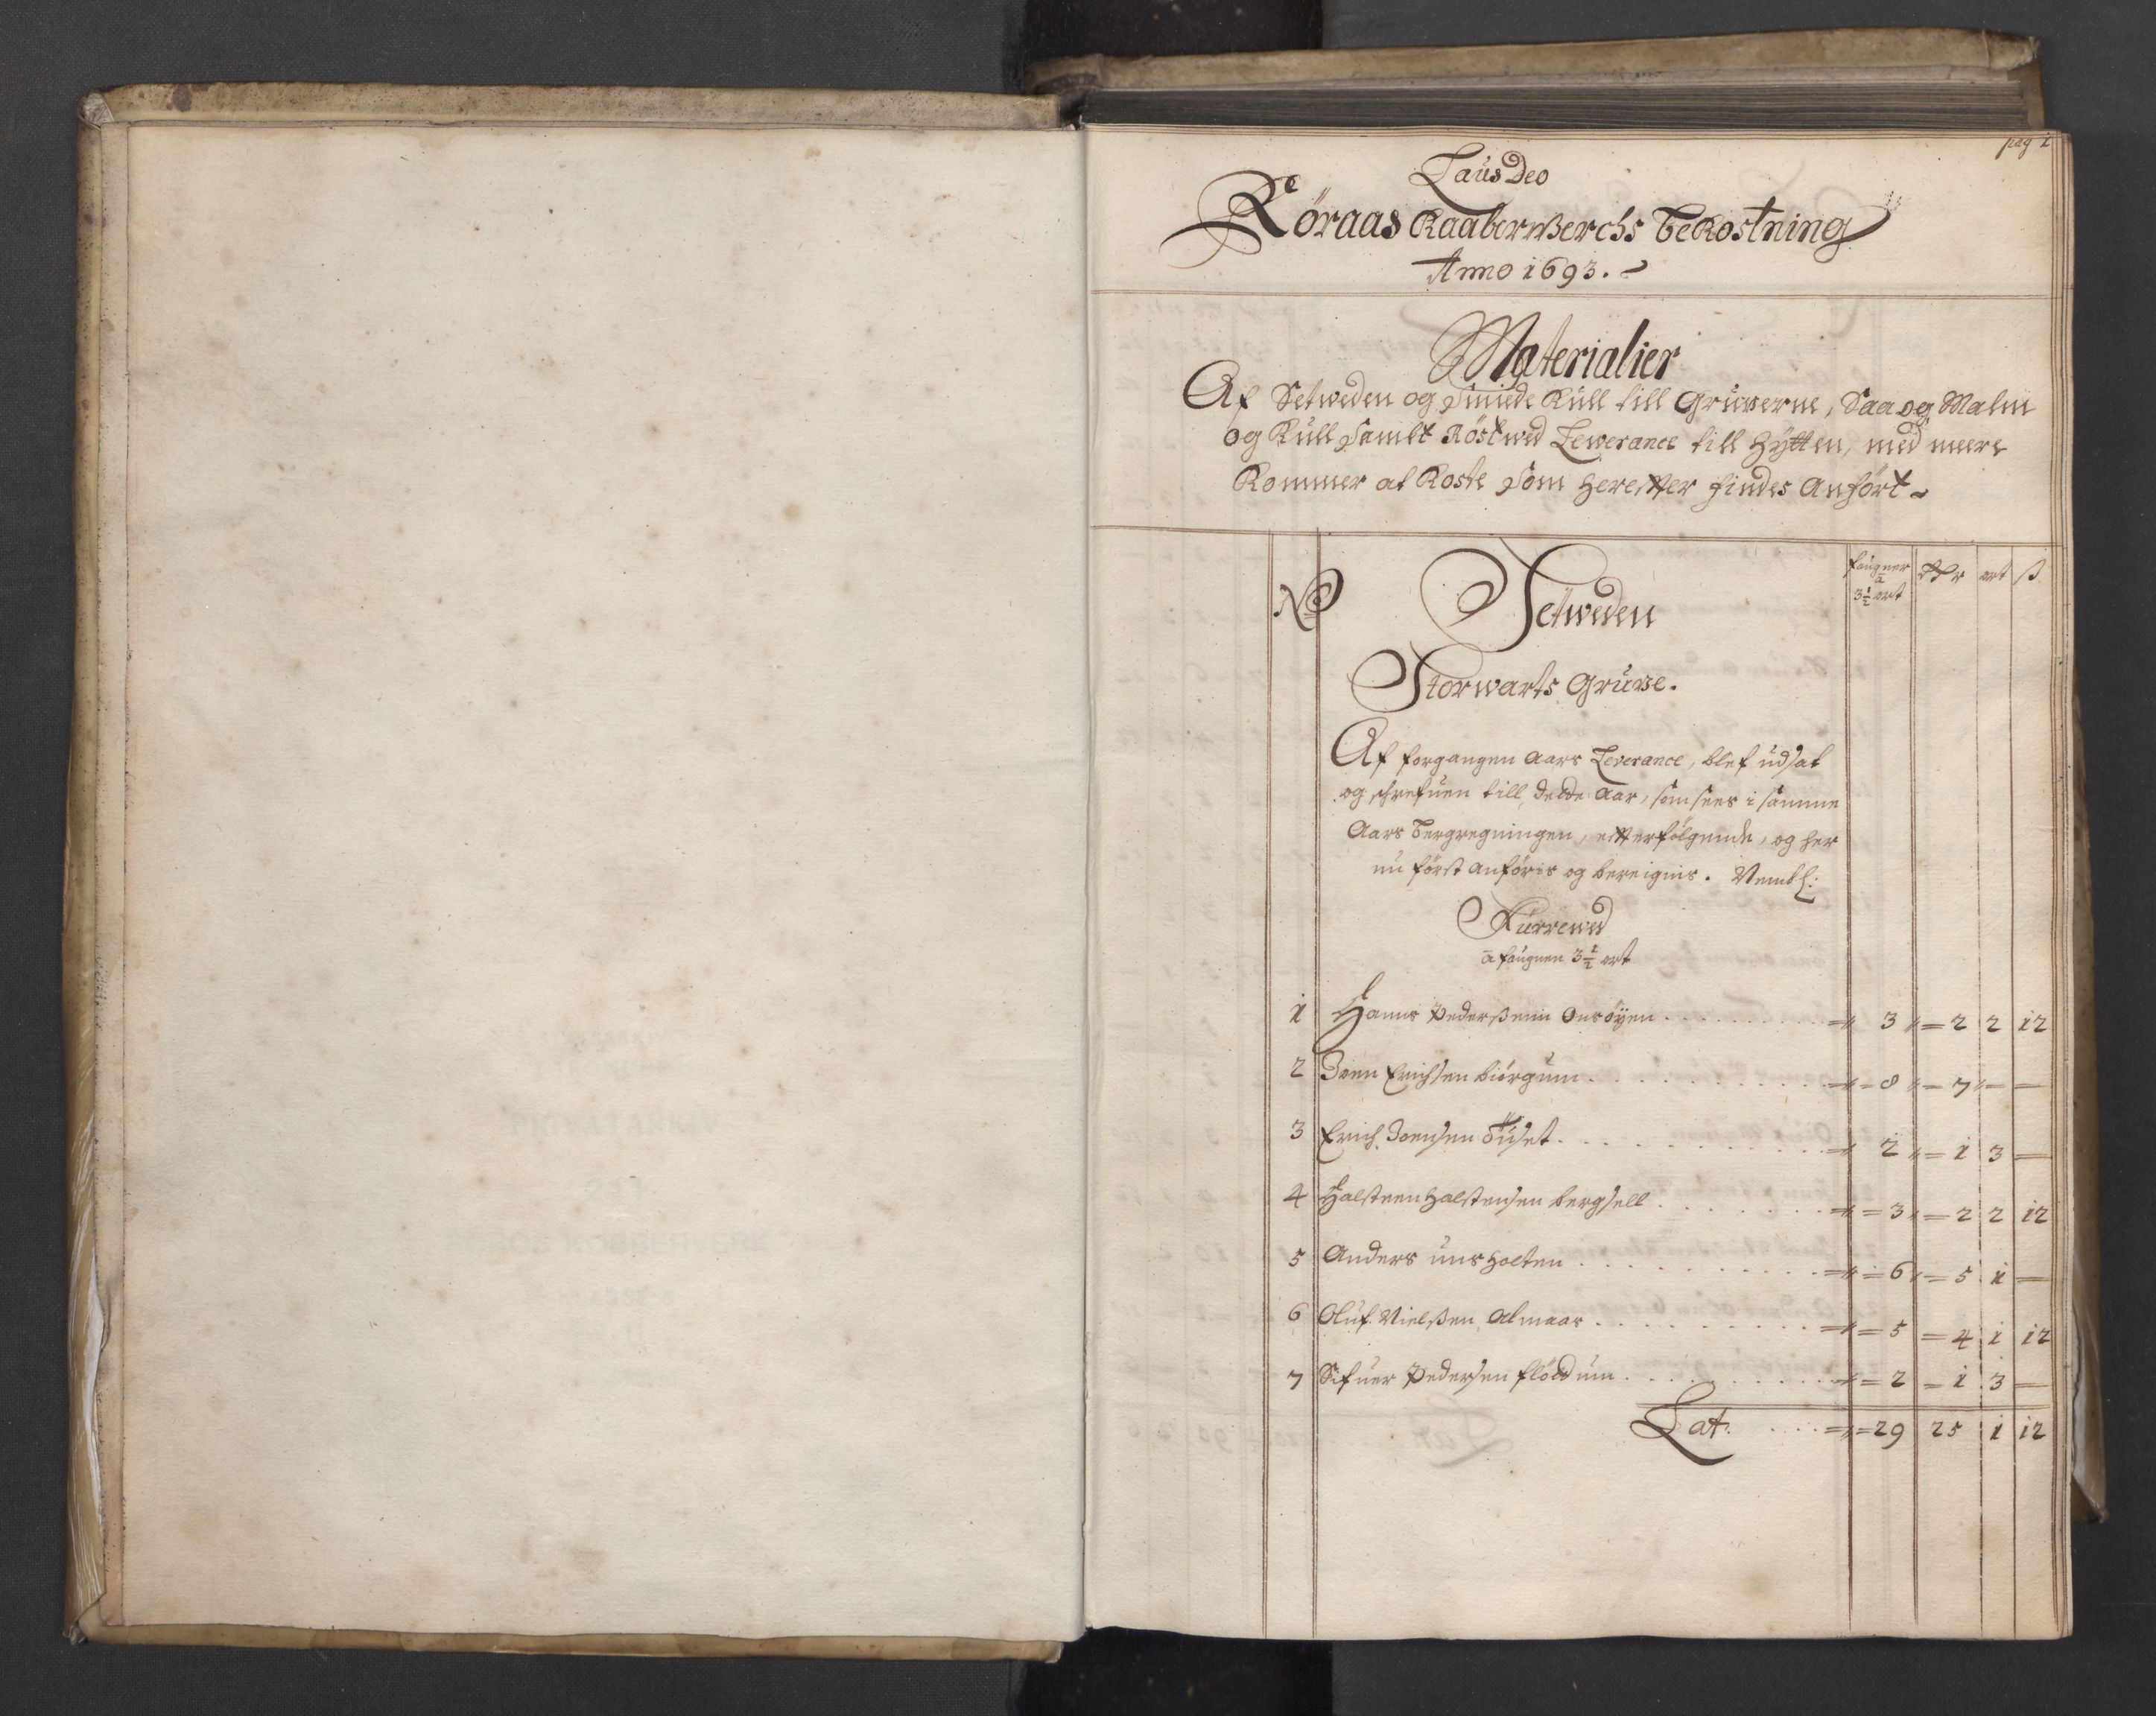 pag 1
Laus Deo
Röraas Kaaberwerchs Bekostning
Anno 1693.
Materialier
Af Setweden og Smiede Kull till Gruverne, Saa og Malm
og Kull Sambt Röstwed Leverance till Hytten, med meere
Kommer at Koste Som Herefter findes Anfört
No Setweden faugner a 3½ ort Rdr ort ß
Storwarts Gruve.
Af forgangen Aars Leverance, blef udsat
og schrefuen till dette Aar, som sees i samme
Aars Bergregningen, efterfölgende, og her
nu först anföris og bereignis. Nembl:
Kurrewed
a faugnen 3½ ort
1 Hanns Pederßenn Onsöyen 3 2 2 12
2 Joen Erichsen biörgum 8 7 — —
3 Erich Joensen 2 1 3 —
4 Halsteen Halstensen bergsell 3 2 2 12
5 Anders unsholten 6 5 1 —
6 Oluf Nielßen Almaas 5 4 1 12
7 Sifuer Pedersen 2 1 3 —
Lat. 29 25 1 12